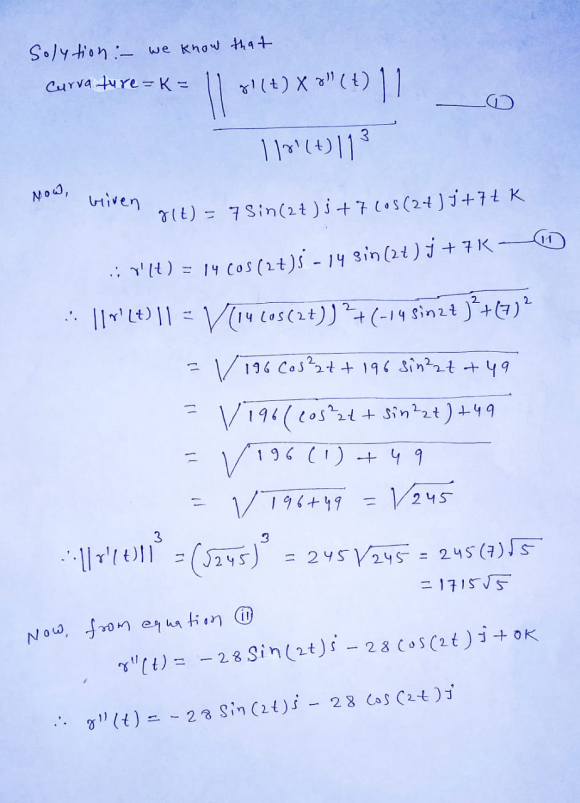 Solution :- we know that
Curvature = K = || r'(t) X r''(t) || / ||r'(t)||³ — (i)
Now, Given r(t) = 7 Sin(2t) i + 7 Cos(2t) j + 7t K
∴ r'(t) = 14 cos(2t) i - 14 sin(2t) j + 7K — (ii)
∴ ||r'(t)|| = √((14 cos(2t))² + (-14 sin2t)² + (7)²
= √196 Cos²2t + 196 Sin²2t + 49
= √196(cos²2t + sin²2t) + 49
= √196 (1) + 49
= √196+49 = √245
∴ ||r'(t)||³ = (√245)³ = 245√245 = 245(7)√5
= 1715√5
Now, from equation (ii)
r''(t) = - 28 Sin(2t) i - 28 Cos(2t) j + 0K
∴ r''(t) = - 28 Sin(2t) i - 28 Cos(2t) j